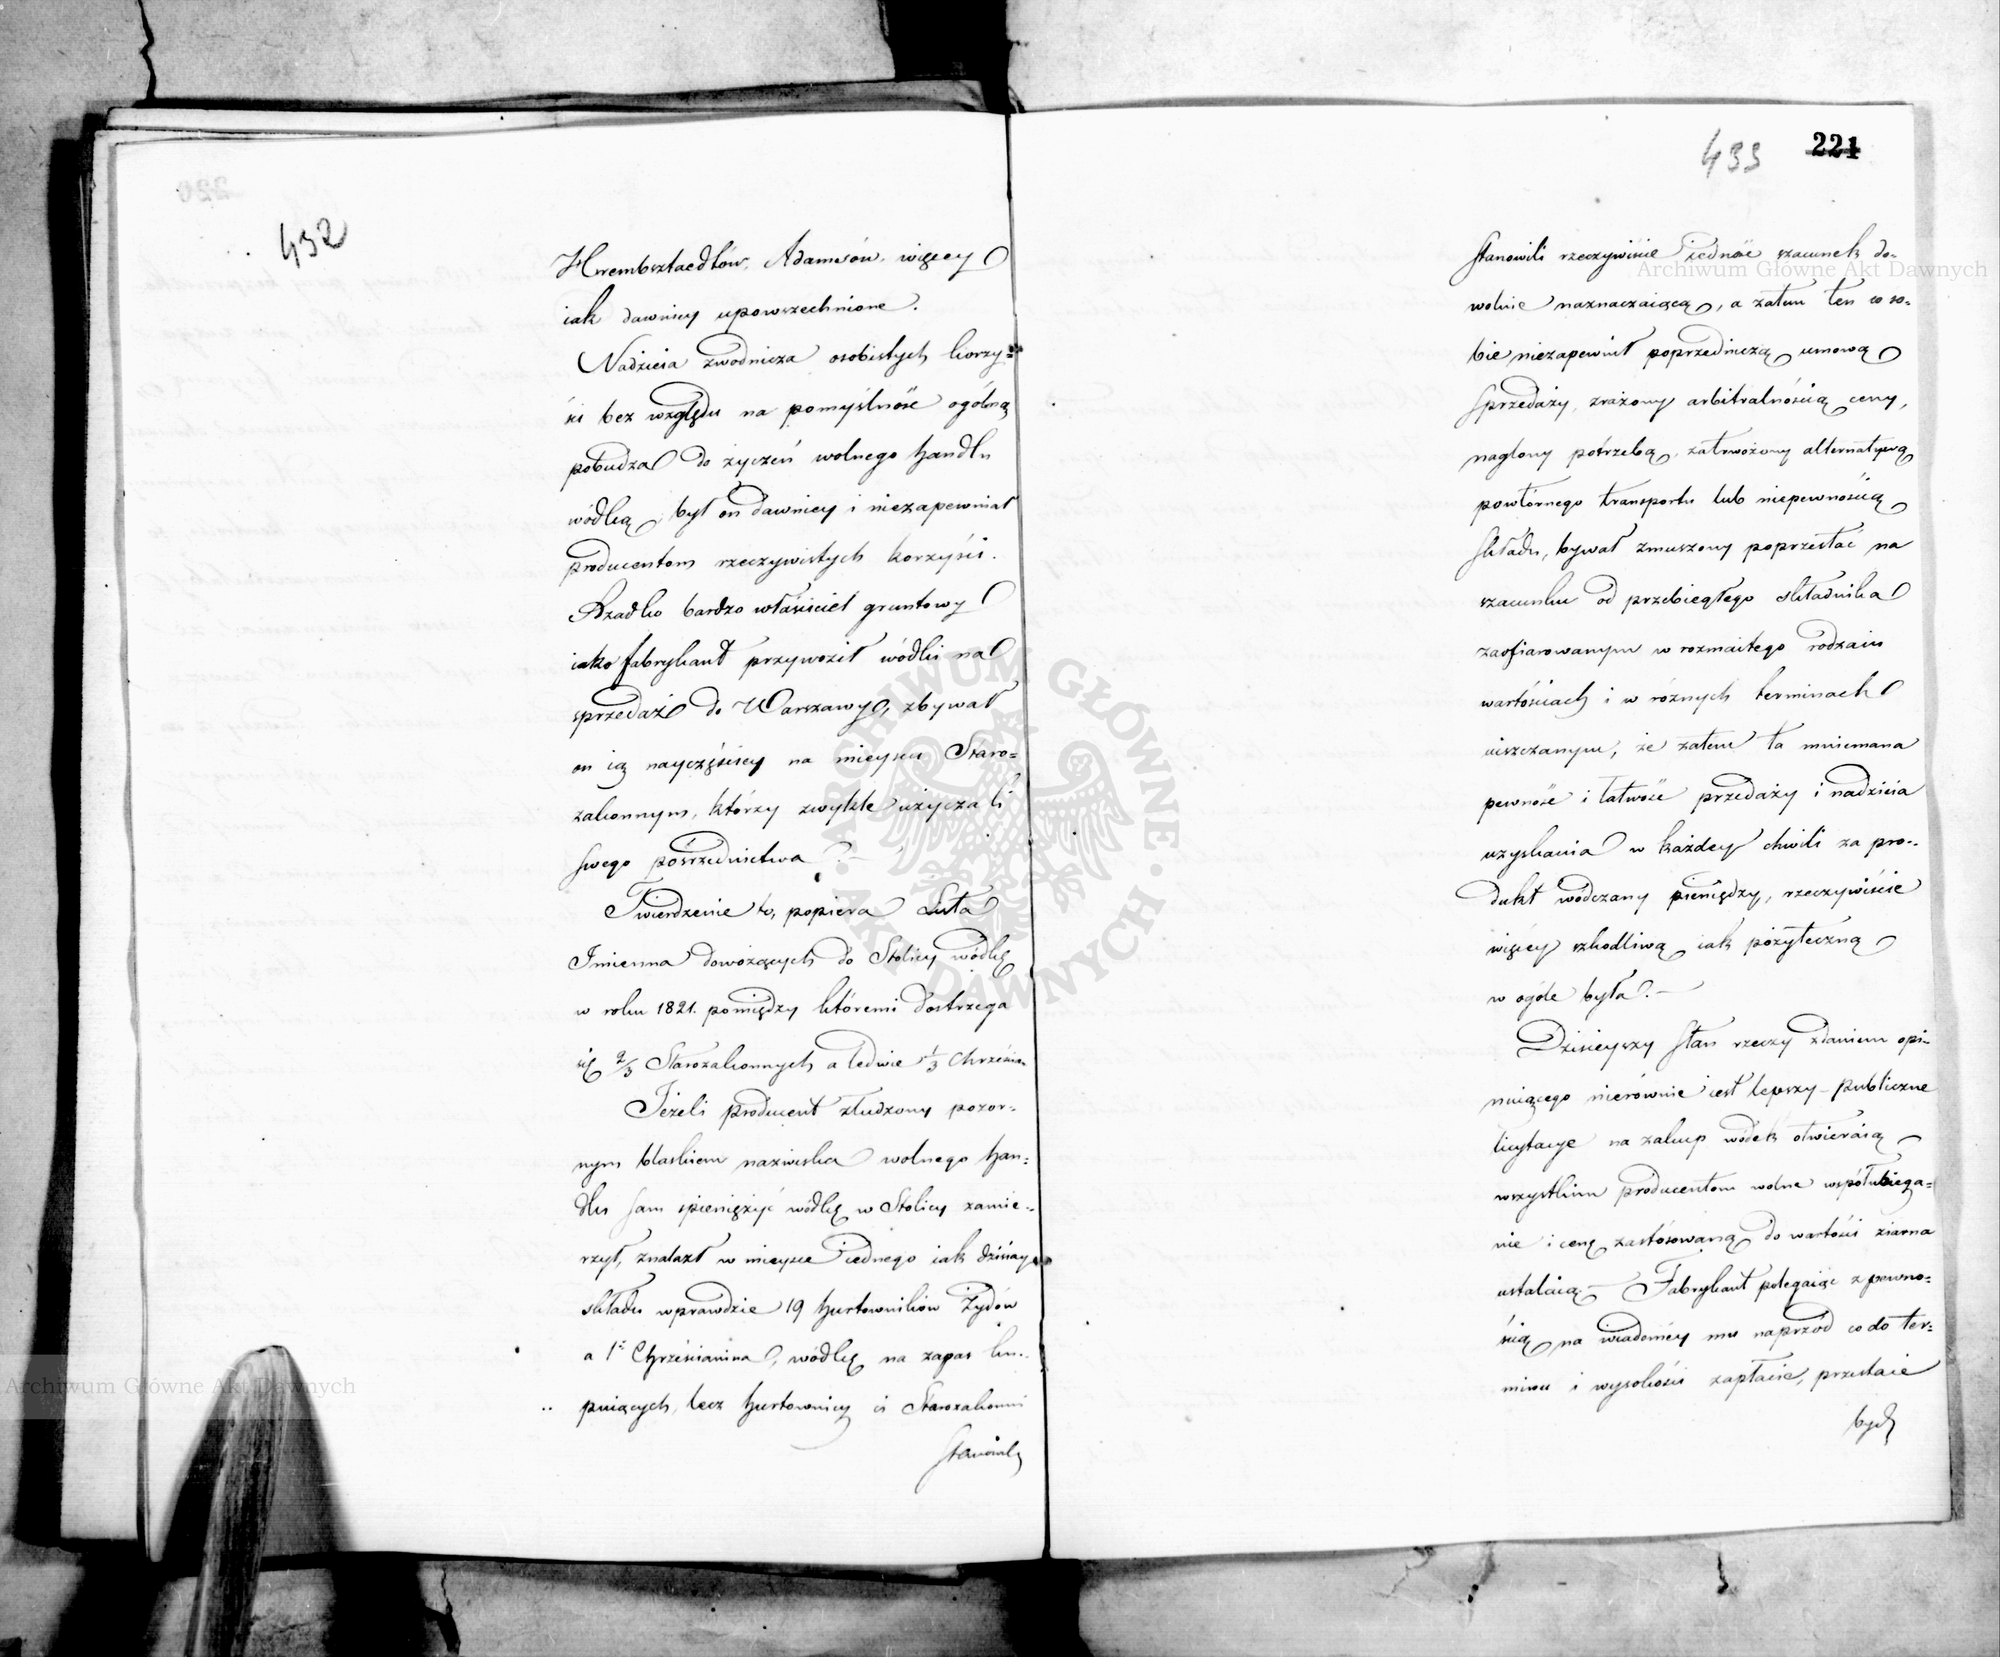 432
Hrembsztaedtów, Adamsów, więcey
iak dawniey upowszechnione.
Nadzieia zwodnicza osobistych korzy=
ści bez względu na pomyślność ogólną
pobudza do życzeń wolnego handlu
wódką, był on dawniey i niezapewniał
producentom rzeczywistych korzyści.
Rzadko bardzo właściciel gruntowy
iako fabrykant przywoził wódki na
sprzedaż do Warszawy, zbywał
on ią nayczęściey na mieyscu Staro=
zakonnym, którzy zwykle użyczali
swego pośrzednictwa.—
Twierdzenie to, popiera Lista
Imienna dowożących do Stolicy wódkę
w roku 1821. pomiędzy któremi dostrzega
się 2/3 Starozakonnych a ledwie 1/3 Chrześcian
Jeżeli producent złudzony pozor=
nym blaskiem nazwiska wolnego han=
dlu sam spieniężyć wódkę w Stolicy zamie=
rzył, znalazł w mieysce iednego iak dzisiay
składu wprawdzie 19 hurtowników Żydów
a 1. Chrześcianina, wódkę na zapas ku=
puiących, lecz hurtownicy ci Starozakonni
stanowili
433 221
stanowili rzeczywiście iedność szacunek do=
wolnie naznaczaiącą, a zatem ten co so=
bie niezapewnił poprzedniczą umową
sprzedaży, zrażony arbitralnością ceny,
naglony potrzebą, zatrwożony alternatywą
powtórnego transportu lub niepewnością
składu, bywał zmuszony poprzestać na
szacunku od przebiegłego składnika
zaofiarowanym w rozmaitego rodzaiu
wartościach i w różnych terminach
uiszczanym, że zatem ta mniemana
pewność i łatwość przedaży i nadzieia
uzyskania w każdey chwili za pro=
dukt wódczany pieniędzy, rzeczywiście
więcey szkodliwą iak pożyteczną
w ogóle była.—
Dzisieyszy stan rzeczy zdaniem opi=
niuiącego nierównie iest lepszy – publiczne
licytacye na zakup wódek otwieraią
wszystkim producentom wolne współubiega=
nie i cenę zastósowaną do wartości ziarna
ustalaią – Fabrykant polegaiąc z pewno=
ścią na wiadomey mu naprzód co do ter=
minu i wysokości zapłacie, przestaie
bydź
Archiwum Główne Akt Dawnych
Archiwum Główne Akt Dawnych
ARCHIWUM GŁÓWNE AKT DAWNYCH